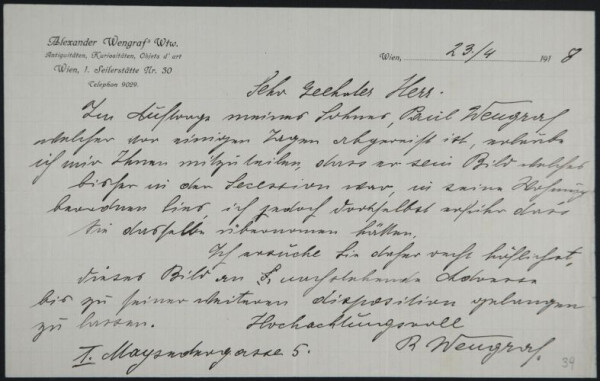 Alexander Wengraf's Wtw.
Antiquitäten, Kuriositäten, Objets d'art
Wien, I. Seilerstätte Nr. 30
Telephon 9029.
Wien, 23./4 1918
Sehr Geehrter Herr.
Im Auftrage meines Sohnes, Paul Wengraf
welcher vor einigen Tagen abgereist ist, erlaube
ich mir Ihnen mitzuteilen, dass er sein Bild welches
bisher in der Secession war, in seine Wohnung
beordnen lies, ich jedoch dortselbst erfuhr dass
Sie dasselbe übernomen hätten.
Ich ersuche Sie daher recht höflichst,
dieses Bild an nachstehende Adresse
bis zu seiner weiteren disposition gelangen
zu lassen. Hochachtungsvoll
I. Maysedergasse 5. R Wengraf.
39